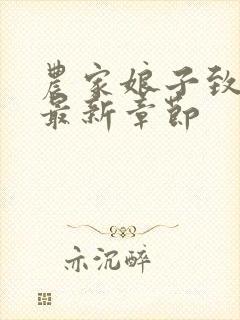 農家娘子致
最新章節
示沉醉